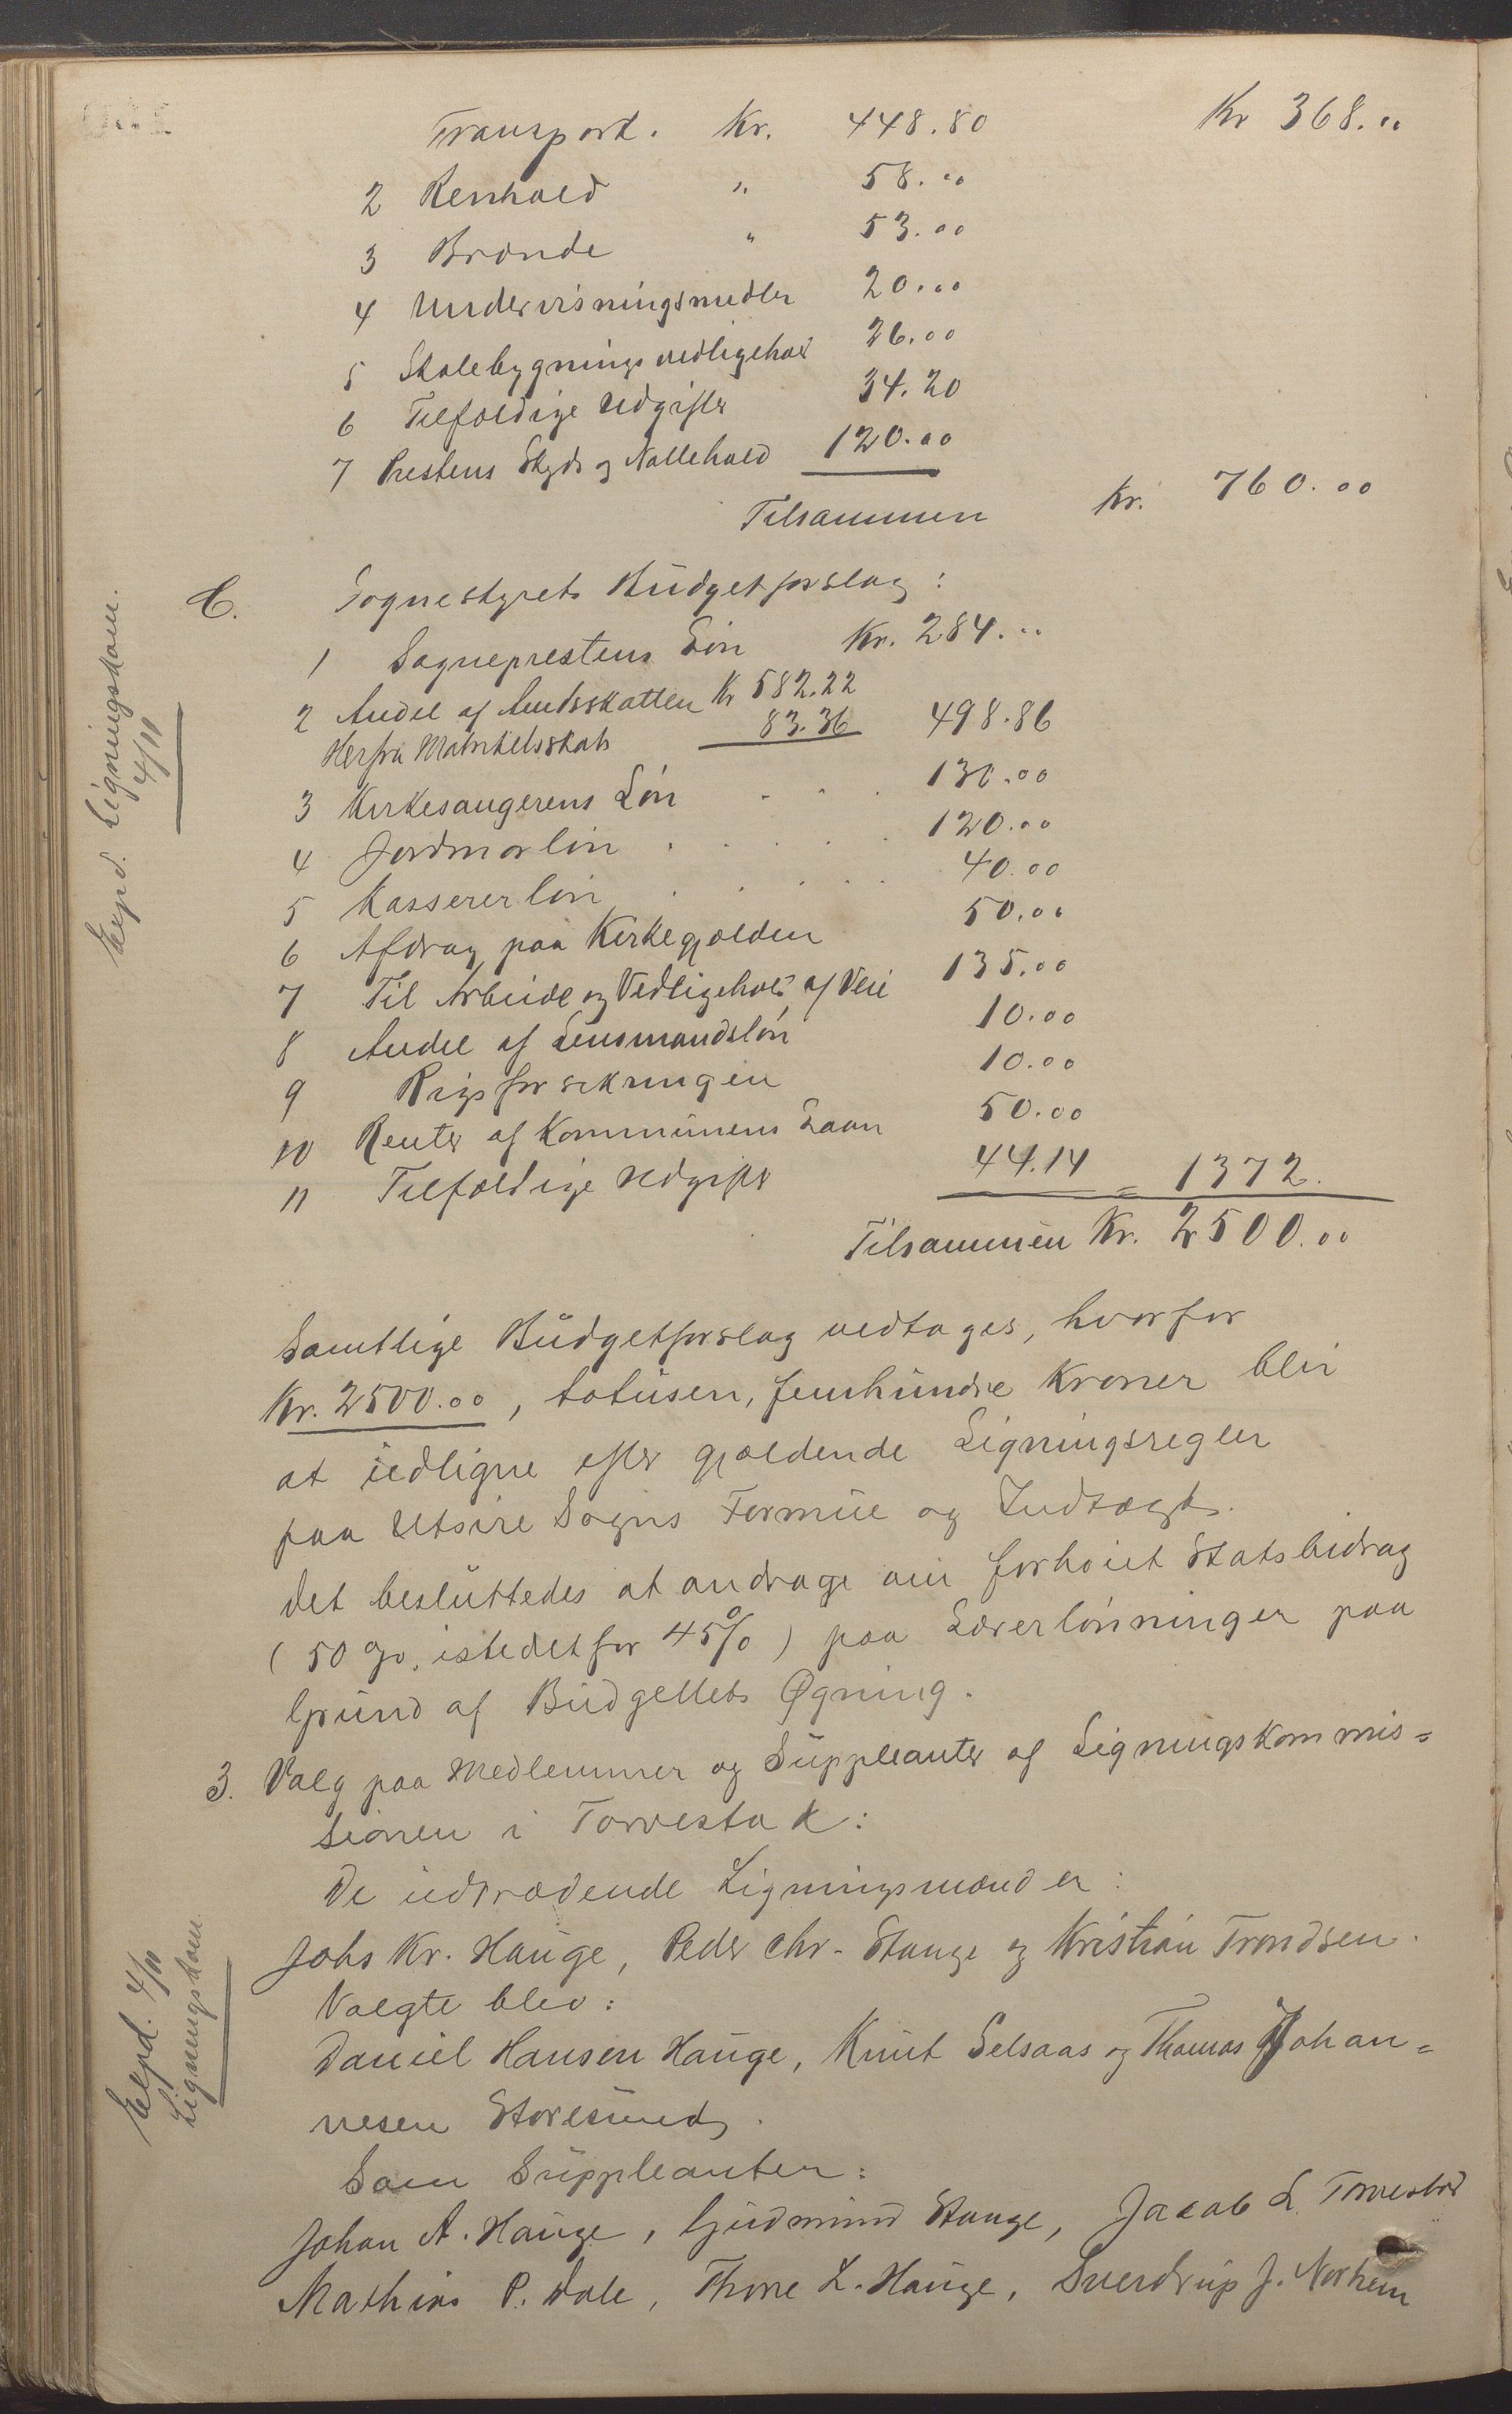 Transport. Kr. 448.80 Kr 368.00
2 Renhold " 58.00
3 Brænde " 53.00
4 Undervisningsmidler 20.00
5 Skolebygnings vedligehold 26.00
6 Tilfældige Udgifter 34.20
7 Prestens Skyds og Nattehold 120.00
Tilsammen Kr. 760.00
C. Sognestyrets Budgetforslag:
1 Sogneprestens Løn Kr. 284.00
2 Andel af Amtsskatten Kr 582.22
Herfra Matrikelsskat 83.36 498.86
3 Kirkesangerens Løn 130.00
4 Jordmorløn 120.00
5 Kassererløn 40.00
6 Afdrag paa Kirkegjælden 50.00
7 Til Arbeide og Vedligehold af Veie 135.00
8 Andel af Lensmandsløn 10.00
9 Rigsforsikringen 10.00
10 Renter af Kommunens Laan 50.00
11 Tilfældige Udgifter 44.14 = 1372.
Tilsammen Kr. 2500.00
Samtlige Budgetforslag vedtages, hvorfor
Kr. 2500.00, totusen, femhundre Kroner blir
at udligne efter gjældende Ligningsregler
paa Utsire Sogns Formue og Indtægt.
Det besluttedes at andrage om forhøiet Statsbidrag
(50 %, istedetfor 45%) paa Lærerlønninger paa
Grund af Budgettets Øgning.
3. Valg paa Medlemmer og Suppleanter af Ligningskommis=
sionen i Torvestad:
De udtrædende Ligningsmænd er:
Johs Kr. Hauge, Peder Chr. Stange og Kristian Trondsen.
Valgte blev:
Daniel Hansen Hauge, Knut Selsaas og Thomas Johan=
nesen Storesund.
Som Suppleanter:
Johan A. Hauge, Gudmund Stange, Jacob L. Torvestad
Mathias P. Dale, Thore L. Hauge, Sverdrup J. Norheim
Expd. Ligningskom.
4/11
Expd. 4/11
Ligningskom.